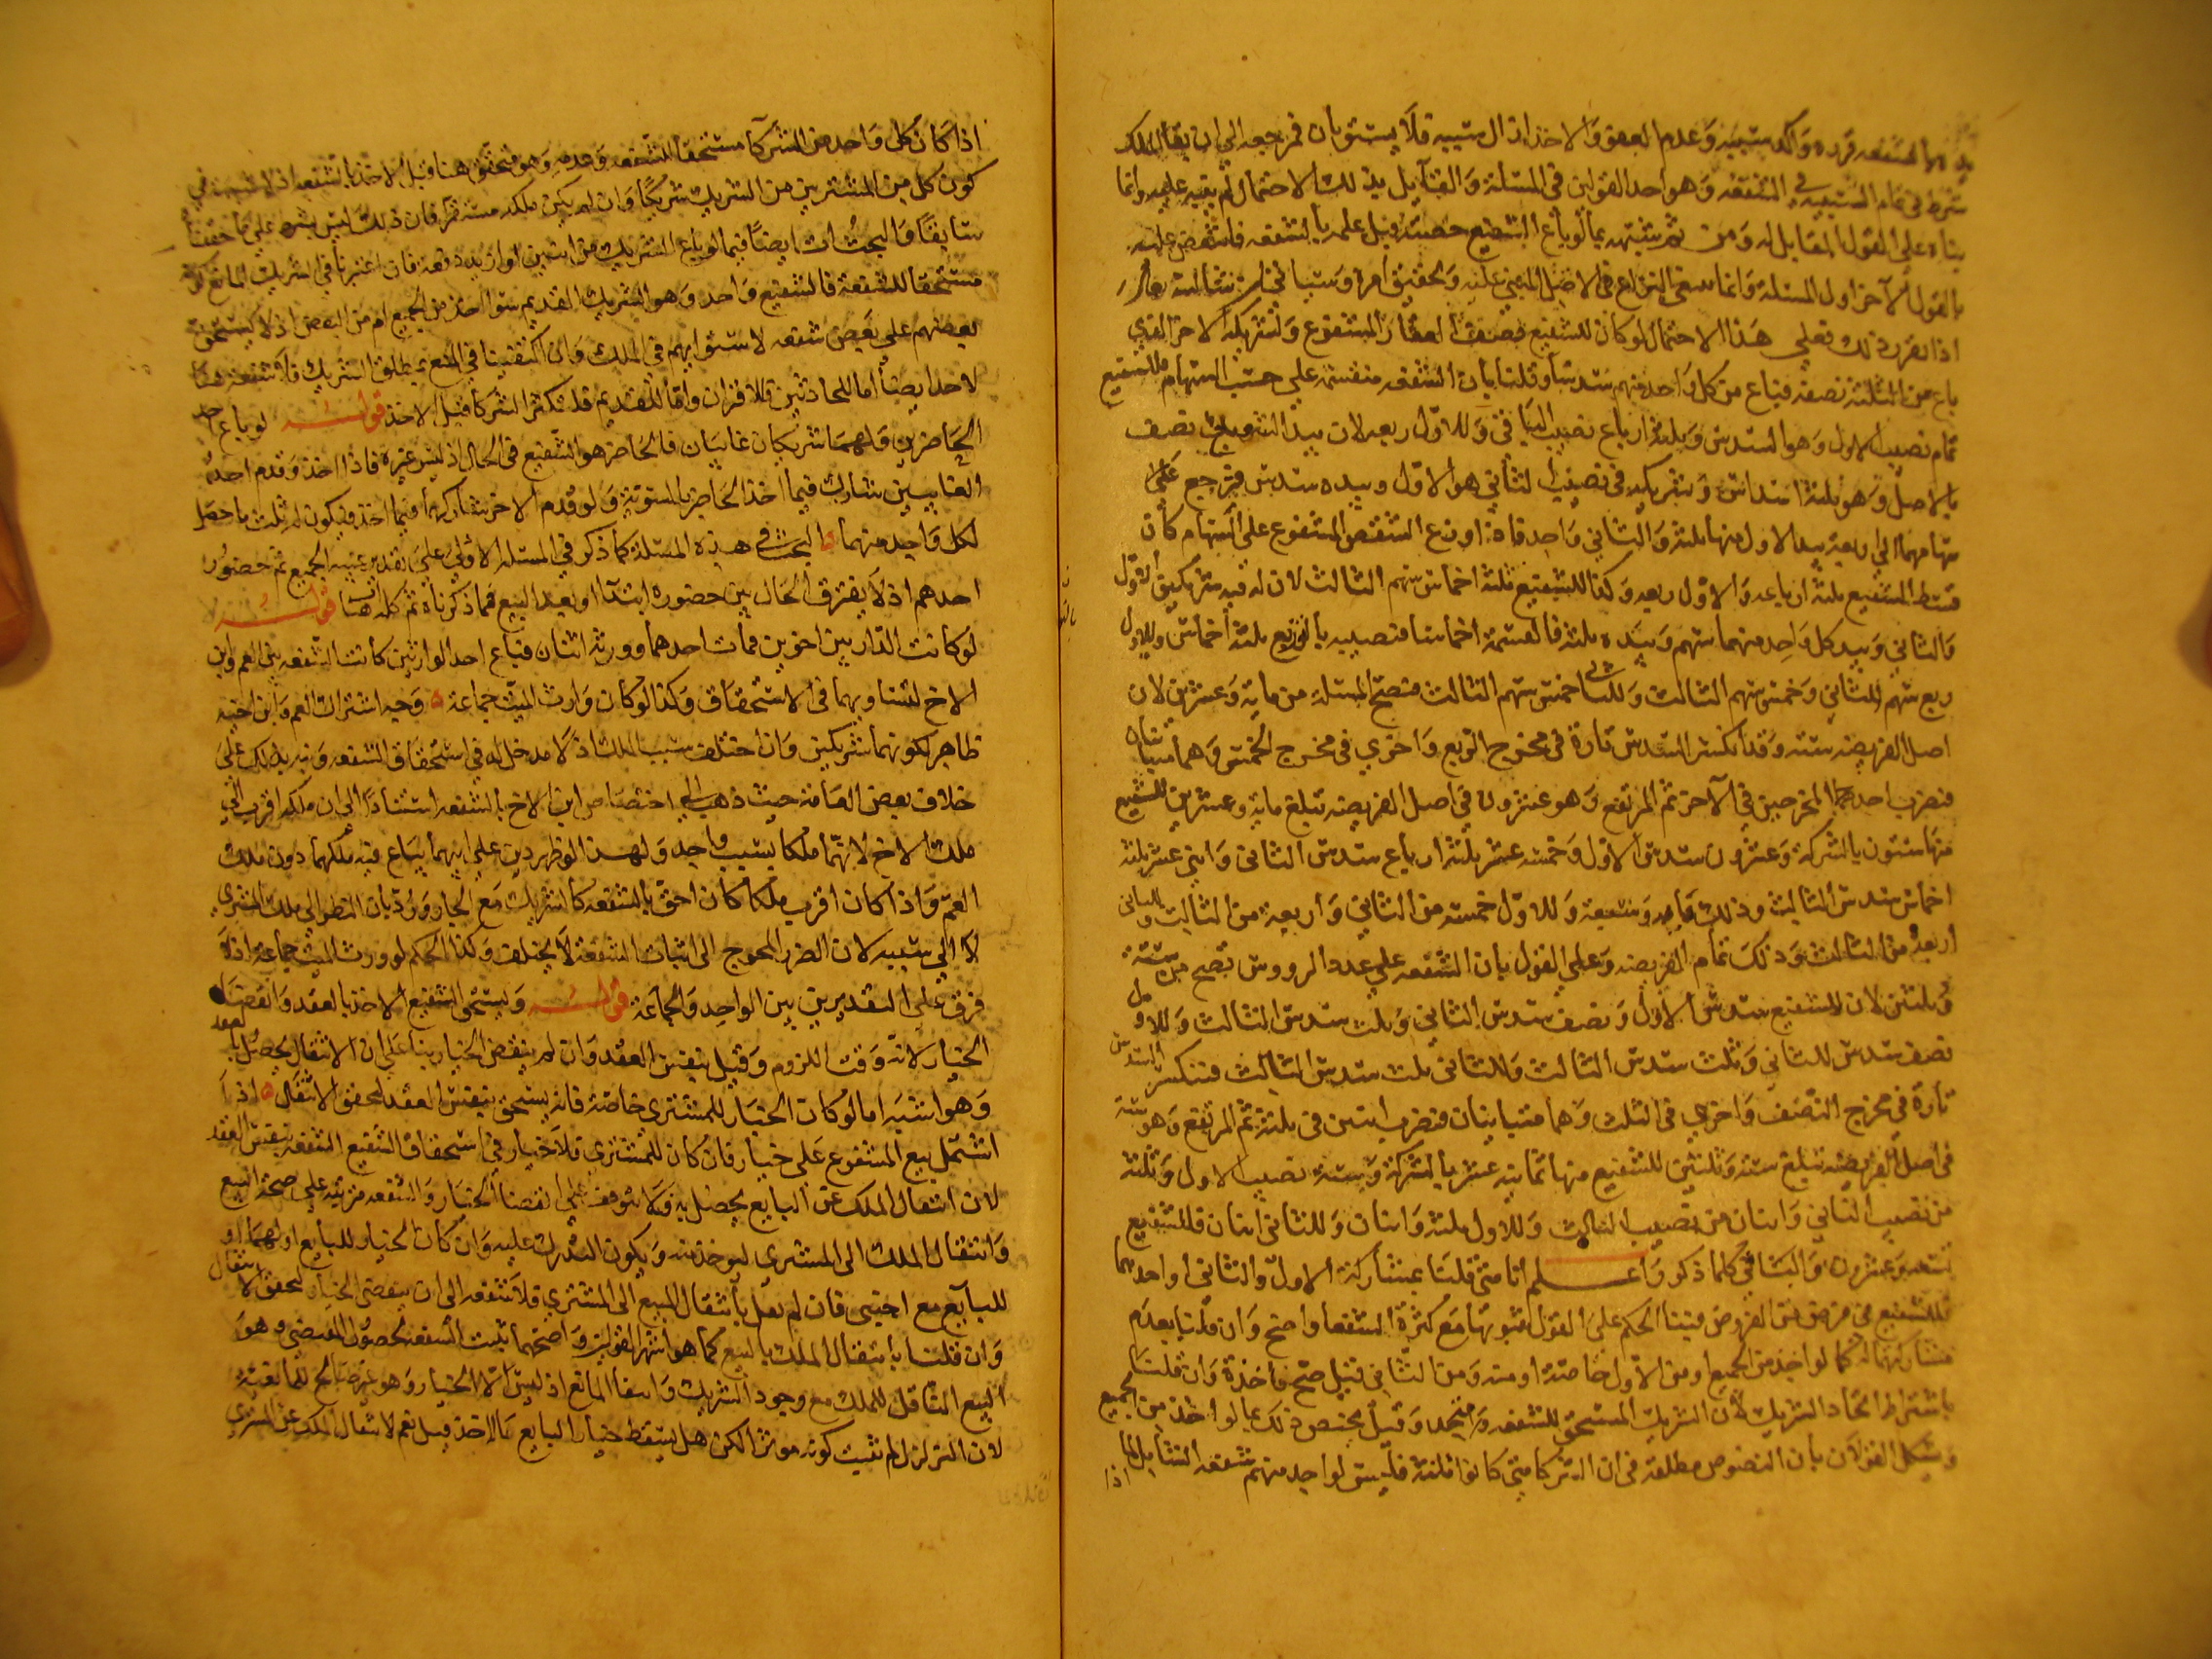 شرط في تمام السببية في الشفعة وهو احد القولين في المسئلة والقايل بذلك الاحتمال لم يبنه عليه وانما
بناه على القول المقابل له ومن ثم شبهه بما لو باع الشفيع حصته قبل علمه بالشفعة
بالقول الآخر اول المسئلة وانما النزاع في الاصل المبني عليه وتحقيق امره وسياتي
اذا تقرر ذلك فعلى هذا الاحتمال لو كان للشفيع نصف العقار المشفوع ولشريكه الاخر الذي
باع من الثلثة نصفه فباع من كل واحد منهم سدسا وقلنا بان الشفعة منقسمة على حسب السهام فللشفيع
تمام نصيب الاول وهو السدس وثلثة ارباع نصيب الثاني وللاول ربعه لان بيد الشفيع نصف
بالاصل وهو ثلثة اسداس وشريكه في نصيب الثاني هو الاول وبيده سدس فترجع
سهامهما الى اربعة بيد الاول منها ثلثة والثاني واحد فاذا وزع الشقص المشفوع على السهام كان
قسط الشفيع ثلثة ارباعه والاول ربعه وكذا للشفيع ثلثة اخماس سهم الثالث لان له فيه شريكين الاول
والثاني وبيد كل واحد منهما سهم وبيده ثلثة فالقسمة اخماسا فنصيبه بالتوزيع ثلثة اخماس وللاول
ربع سهم الثاني وخمس سهم الثالث وللثاني خمس سهم الثالث فتصح المسئلة من ماية وعشرين لان
اصل الفريضة ستة وقد انكسر السدس تارة في مخرج الربع واخرى في مخرج الخمس وهما متباينان
فنضرب احد المخرجين في الآخر ثم المرتفع وهو عشرون في اصل الفريضة تبلغ ماية وعشرين للشفيع
منها ستون بالشركة وعشرون سدس الاول وخمسة عشر ثلثة ارباع سدس الثاني واثني عشر ثلثة
اخماس سدس الثالث وذلك ماية وسبعة وللاول خمسة من الثاني واربعة من الثالث وللثاني
اربعة من الثالث وذلك تمام الفريضة وعلى القول بان الشفعة على عدد الرووس تصح من ستة
وثلثين لان للشفيع سدس الاول ونصف سدس الثاني وثلث سدس الثالث وللاول
نصف سدس الثاني وثلث سدس الثالث وللثاني ثلث سدس الثالث فتنكسر السدس
تارة في مخرج النصف واخرى في الثلث وهما متباينان فنضرب اثنين في ثلثة ثم المرتفع وهو ستة
في اصل الفريضة تبلغ ستة وثلثين للشفيع منها ثمانية عشر بالشركة وستة نصيب الاول وثلثة
من نصيب الثاني واثنان من نصيب الثالث وللاول ثلثة واثنان وللثاني اثنان فللشفيع
تسعة وعشرون والباقي كما ذكر واعلم انا متى قلنا بمشاركة الاول والثاني او احدهما
للشفيع في فرض من الفروض فبنا الحكم على القول بثبوتها مع كثرة الشفعا واضح وان قلنا بعدم
مشاركتهما له كما لو اخذ من الجميع او من الاول خاصة او منه ومن الثاني قيل صح ماخذه وان قلنا
باشتراط اتحاد الشريك لان الشريك المستحق للشفعة متحد وقيل يختص ذلك بما لو اخذ من الجميع
ويشكل القولان بان النصوص مطلقة في ان الشركا متى كانوا ثلثة فليس لواحد منهم شفعة
اذا
اذا كان كل واحد من الشركا مستحقا للشفعة وعدمه وهو متحقق هنا قبل الاخذ بالشفعة اذ لا شبهة في
كون كل من المشترين من الشريك شريكا وان لم يكن ملكه مستقرا فان ذلك ليس بشرط على ما حققناه
سابقا والبحث ات ايضا فيما لو باع الشريك من اثنين او ازيد دفعة فان اعتبرنا في الشريك المانع كونه
مستحقا للشفعة فالشفيع واحد وهو الشريك القديم سوا اخذ من الجميع ام من البعض اذ لا يستحق
بعضهم على بعض شفعة لاستوايهم في الملك وان اكتفينا في المنع بمطلق الشريك فلا شفعة هنا
لاحد ايضا اما للحادثين فللاقتران واما للقديم فلتكثر الشركا قبل الاخذ قوله لو باع احد
الحاضرين ولهما شريكان غايبان فالحاضر هو الشفيع في الحال اذ ليس غيره فاذا اخذ وقدم احد
الغايبين شارك فيما اخذ الحاضر بالسوية ولو قدم الاخر شاركهما فيما اخذ فيكون له ثلث ما حصل
لكل واحد منهما البحث في هذه المسئلة كما ذكر في المسئلة الاولى على تقدير غيبة الجميع ثم حضور
احدهم اذ لا يفترق الحال بين حضوره ابتدا او بعد البيع فما ذكرناه ثم كله ات هنا قوله
لو كانت الدار بين اخوين فمات احدهما وورثه اثنان فباع احد الوارثين كانت الشفعة بين العم وابن
الاخ لتساويهما في الاستحقاق وكذا لو كان وارث الميت جماعة وجه اشتراك العم وابن اخيه
ظاهر لكونهما شريكين وان اختلف سبب الملك اذ لا مدخل له في استحقاق الشفعة ونبه بذلك على
خلاف بعض العامة حيث ذهب الى اختصاص ابن الاخ بالشفعة استنادا الى ان ملكه اقرب الى
ملك الاخ لانهما ملكا بسبب واحد ولهذا لو ظهر دين على ابيهما يباع فيه ملكهما دون ملك
العم واذا كان اقرب ملكا كان احق بالشفعة كالشريك مع الجار ورد بان النظر الى ملك الشريك
لا الى سببه لان الضرر المحوج الى اثبات الشفعة لا يختلف وكذا الحكم لو ورث الميت جماعة اذ لا
فرق على التقديرين بين الواحد والجماعة قوله ويستحق الشفيع الاخذ بالعقد وانقضا
الخيار لانه وقت اللزوم وقيل بنفس العقد وان لم ينقض الخيار بنا على ان الانتقال يحصل بالعقد
وهو اشبه اما لو كان الخيار للمشتري خاصة فانه يستحق بنفس العقد لتحقق الانتقال اذا
اشتمل بيع المشفوع على خيار فان كان للمشتري فلا خيار في استحقاق الشفيع الشفعة بنفس العقد
لان انتقال الملك عن البايع يحصل به ولا يتوقف على انقضا الخيار والشفعة مترتبة على صحة البيع
وانتقال الملك الى المشتري ليوخذ منه ويكون الدرك عليه وان كان الخيار للبايع او لهما او
للبايع مع اجنبي فان لم نقل بانتقال المبيع الى المشتري فلا شفعة الى ان ينقضي الخيار لتحقق الانتقال
وان قلنا بانتقال الملك بالبيع كما هو اشهر القولين واصحهما تثبت الشفعة لحصول المقتضي وهو
البيع الناقل للملك مع وجود الشريك وانتفا المانع اذ ليس الا الخيار وهو غير صالح للمانعية
لان التزلزل لم يثبت كونه موثرا لكن هل يسقط خيار البايع بالاخذ قيل نعم لانتقال الملك عن المشتري